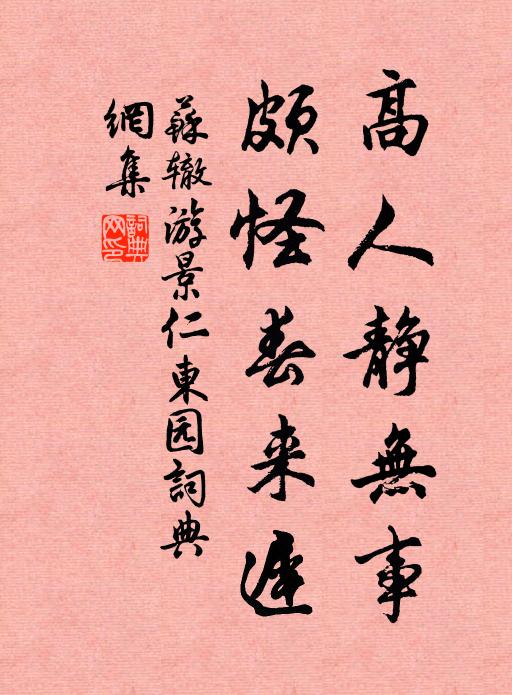 高人静無事
頗怪春来遲
蘇辙游景仁東园詞典
網集
詞典网印